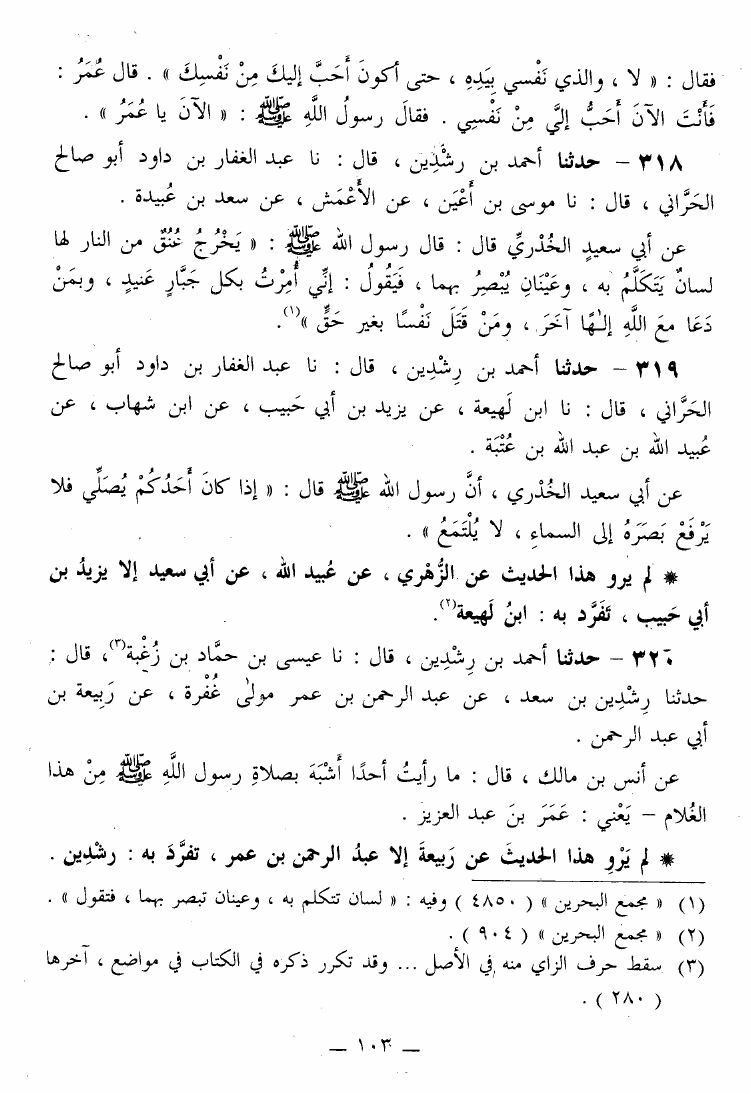 فقال : « لا ، والذي نَفْسي بِيَدِهِ ، حتى أكونَ أَحَبَّ إليكَ مِنْ نَفْسِكَ » . قال عُمَرُ :
فَأَنْتَ الآنَ أَحَبُّ إليَّ مِنْ نَفْسِي . فقالَ رسولُ اللَّهِ ﷺ : « الآنَ يا عُمَرُ » .
٣١٨ – حدثنا أحمد بن رِشْدِين ، قال : نا عبد الغفار بن داود أبو صالح
الحَرَّاني ، قال : نا موسى بن أَعْيَن ، عن الأَعْمَش ، عن سعد بن عُبيدة .
عن أبي سعيدٍ الخُدْريِّ قال : قال رسول الله ﷺ : « يَخْرُجُ عُنُقٌ من النار لها
لسانٌ يَتَكَلَّمُ به ، وعَيْنَانِ يُبْصِرُ بهما ، فَيَقُولُ : إنِّي أُمِرْتُ بكل جَبَّارٍ عَنيدٍ ، وبمَنْ
دَعَا معَ اللَّهِ إلـٰهًا آخَرَ ، ومَنْ قَتَلَ نَفْسًا بغير حَقٍّ »(١).
٣١٩ – حدثنا أحمد بن رِشْدِين ، قال : نا عبد الغفار بن داود أبو صالح
الحَرَّاني ، قال : نا ابن لَهيعة ، عن يزيد بن أبي حَبيب ، عن ابن شهاب ، عن
عُبيد الله بن عبد الله بن عُتْبَة .
عن أبي سعيد الخُدْري ، أنَّ رسول الله ﷺ قال : « إذا كانَ أَحَدُكُمْ يُصَلِّي فلا
يَرْفَعْ بَصَرَهُ إلى السماءِ ، لا يُلْتَمَعُ » .
* لم يرو هذا الحديث عن الزُّهْري ، عن عُبيد الله ، عن أبي سعيد إلا يزيدُ بن
أبي حَبيب ، تَفَرَّد به : ابنُ لَهيعة(٢).
٣٢٠ – حدثنا أحمد بن رِشْدِين ، قال : نا عيسى بن حمَّاد بن زُغْبة(٣)، قال :
حدثنا رِشْدِين بن سعد ، عن عبد الرحمن بن عمر مولىٰ غُفْرة ، عن رَبيعة بن
أبي عبد الرحمن .
عن أنس بن مالك ، قال : ما رأيتُ أحدًا أَشْبَهَ بصلاةِ رسول اللَّهِ ﷺ مِنْ هذا
الغُلام – يَعْني : عَمَرَ بنَ عبد العزيز .
* لم يَرْوِ هذا الحديثَ عن رَبيعةَ إلا عبدُ الرحمن بن عمر ، تفرَّدَ به : رِشْدِين .
(١) « مجمع البحرين » ( ٤٨٥٠ ) وفيه : « لسان تتكلم به ، وعينان تبصر بهما ، فتقول » .
(٢) « مجمع البحرين » ( ٩٠٤ ) .
(٣) سقط حرف الزاي منه في الأصل ... وقد تكرر ذكره في الكتاب في مواضع ، آخرها
( ٢٨٠ ) .
– ١٠٣ –